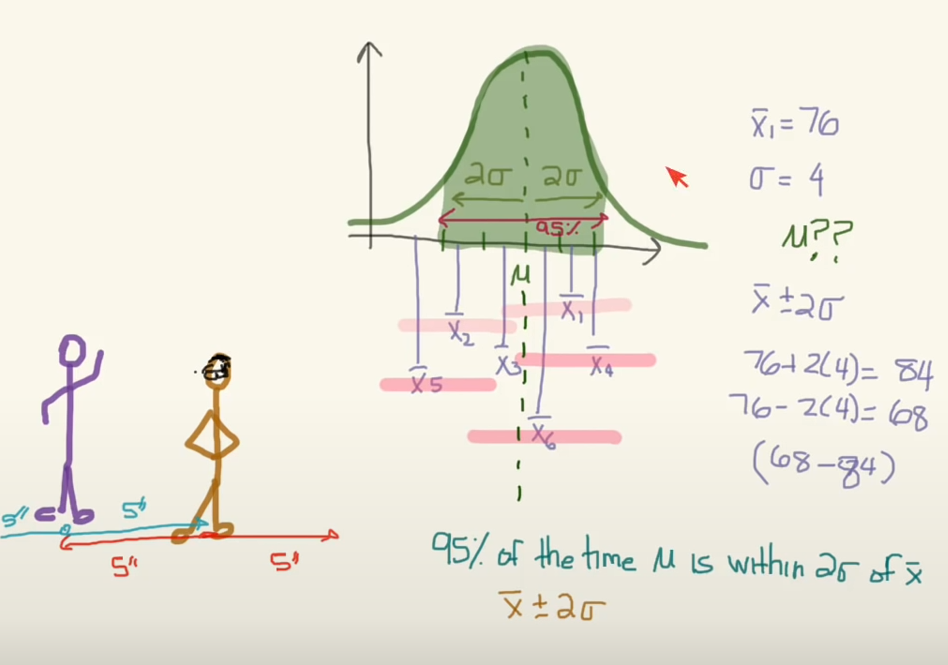 2σ 2σ
95%
μ
x̄₁
x̄₂
x̄₃
x̄₄
x̄5
x̄₆
x̄₁ = 76
σ = 4
μ??
x̄ ± 2σ
76+2(4) = 84
76-2(4) = 68
(68-84)
5" 5"
5" 5"
95% of the time μ is within 2σ of x̄
x̄ ± 2σ